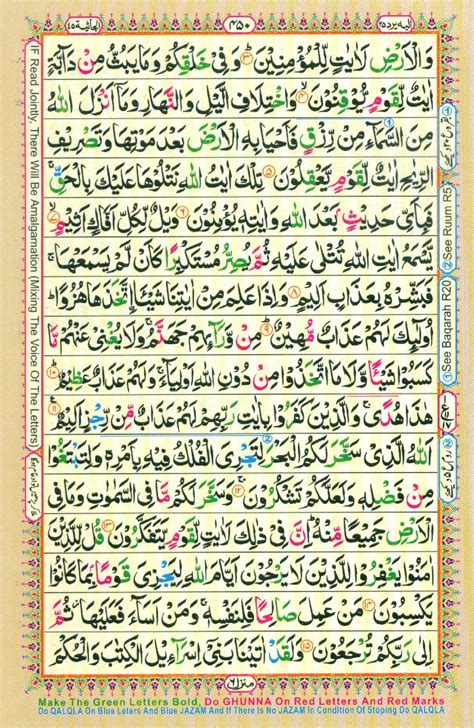 اليه يرد ٢٥
٤٥٠
الجاثية ٤٥
وَالْاَرْضِ لَاٰيٰتٍ لِّلْمُؤْمِنِيْنَ ۝٣ وَفِيْ خَلْقِكُمْ وَمَا يَبُثُّ مِنْ دَآبَّةٍ
اٰيٰتٌ لِّقَوْمٍ يُّوْقِنُوْنَ ۝٤ وَاخْتِلَافِ الَّيْلِ وَالنَّهَارِ وَمَآ اَنْزَلَ اللّٰهُ
مِنَ السَّمَآءِ مِنْ رِّزْقٍ فَاَحْيَا بِهِ الْاَرْضَ بَعْدَ مَوْتِهَا وَتَصْرِيْفِ
الرِّيٰحِ اٰيٰتٌ لِّقَوْمٍ يَّعْقِلُوْنَ ۝٥ تِلْكَ اٰيٰتُ اللّٰهِ نَتْلُوْهَا عَلَيْكَ بِالْحَقِّ ۚ
فَبِاَيِّ حَدِيْثٍۭ بَعْدَ اللّٰهِ وَاٰيٰتِهٖ يُؤْمِنُوْنَ ۝٦ وَيْلٌ لِّكُلِّ اَفَّاكٍ اَثِيْمٍ ۝٧
يَّسْمَعُ اٰيٰتِ اللّٰهِ تُتْلٰى عَلَيْهِ ثُمَّ يُصِرُّ مُسْتَكْبِرًا كَاَنْ لَّمْ يَسْمَعْهَا ۚ
فَبَشِّرْهُ بِعَذَابٍ اَلِيْمٍ ۝٨ وَاِذَا عَلِمَ مِنْ اٰيٰتِنَا شَيْـًٔا اتَّخَذَهَا هُزُوًا ؕ
اُولٰٓئِكَ لَهُمْ عَذَابٌ مُّهِيْنٌ ۝٩ مِنْ وَّرَآئِهِمْ جَهَنَّمُ ۚ وَلَا يُغْنِيْ عَنْهُمْ مَّا
كَسَبُوْا شَيْـًٔا وَّلَا مَا اتَّخَذُوْا مِنْ دُوْنِ اللّٰهِ اَوْلِيَآءَ ۚ وَلَهُمْ عَذَابٌ عَظِيْمٌ ۝١٠
هٰذَا هُدًى ۚ وَالَّذِيْنَ كَفَرُوْا بِاٰيٰتِ رَبِّهِمْ لَهُمْ عَذَابٌ مِّنْ رِّجْزٍ اَلِيْمٌ ۝١١
اَللّٰهُ الَّذِيْ سَخَّرَ لَكُمُ الْبَحْرَ لِتَجْرِيَ الْفُلْكُ فِيْهِ بِاَمْرِهٖ وَلِتَبْتَغُوْا
مِنْ فَضْلِهٖ وَلَعَلَّكُمْ تَشْكُرُوْنَ ۝١٢ وَسَخَّرَ لَكُمْ مَّا فِي السَّمٰوٰتِ وَمَا فِي
الْاَرْضِ جَمِيْعًا مِّنْهُ ؕ اِنَّ فِيْ ذٰلِكَ لَاٰيٰتٍ لِّقَوْمٍ يَّتَفَكَّرُوْنَ ۝١٣ قُلْ لِّلَّذِيْنَ
اٰمَنُوْا يَغْفِرُوْا لِلَّذِيْنَ لَا يَرْجُوْنَ اَيَّامَ اللّٰهِ لِيَجْزِيَ قَوْمًۢا بِمَا كَانُوْا
يَكْسِبُوْنَ ۝١٤ مَنْ عَمِلَ صَالِحًا فَلِنَفْسِهٖ ۚ وَمَنْ اَسَآءَ فَعَلَيْهَا ؗ ثُمَّ
اِلٰى رَبِّكُمْ تُرْجَعُوْنَ ۝١٥ وَلَقَدْ اٰتَيْنَا بَنِيْٓ اِسْرَآءِيْلَ الْكِتٰبَ وَالْحُكْمَ
منزل ٦
IF Read Jointly, There Will Be Amalgamation (Mixing The Voice Of The Letters)
① See Baqarah R20 ② See Ruum R5
Make The Green Letters Bold, Do GHUNNA On Red Letters And Red Marks
Do QALQLA On Blue Leters And Blue JAZAM And If There Is No JAZAM In Condition Of Stoping Do QALQLA